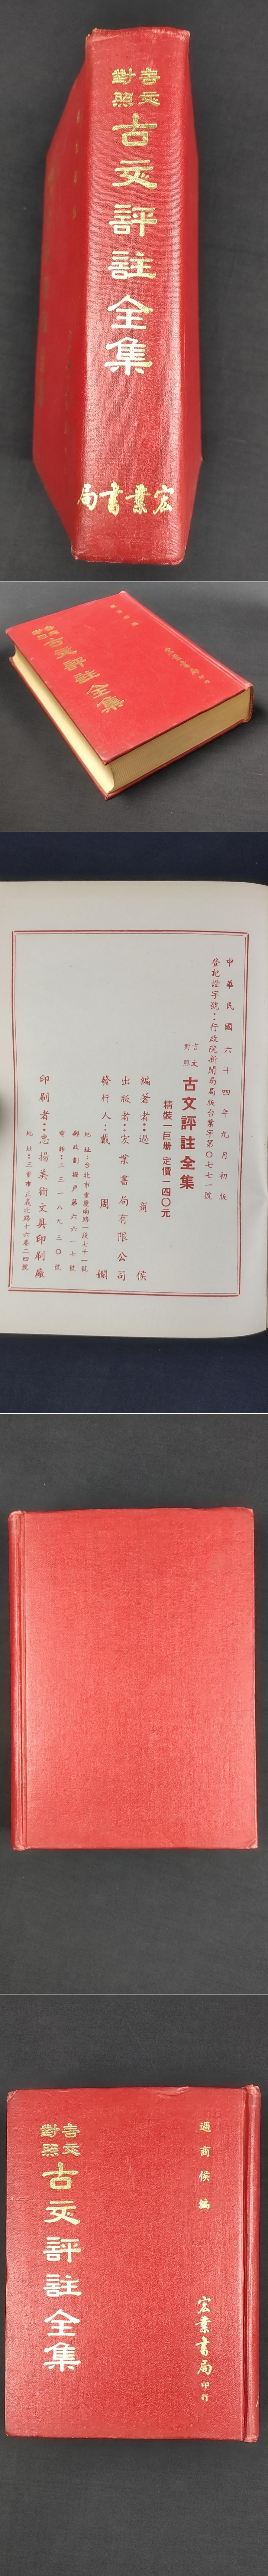 言文
對照
古文評註全集
宏業書局
過商侯編
言文
對照
古文評註全集
宏業書局印行
中華民國六十四年九月初版
登記證字號：行政院新聞局局版台業字第〇七七一號
言文
對照
古文評註全集
精裝一巨册 定價一四〇元
編著者：過商侯
出版者：宏業書局有限公司
發行人：戴周嫻
地址：台北市重慶南路一段七十一號
郵政劃撥戶第六六一七號
電話：三三一八九三〇號
印刷者：忠揚美術文具印刷廠
地址：三重市正義北路十六巷二四號
過商侯編
宏業書局印行
言文
對照
古文評註全集